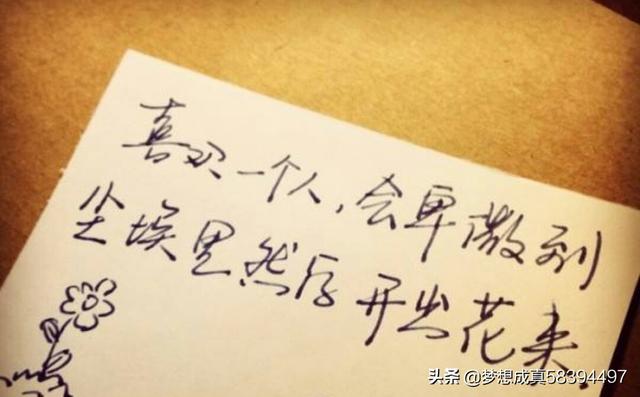 喜欢一个人，会卑微到
尘埃里然后开出花来.
头条 @梦想成真58394497